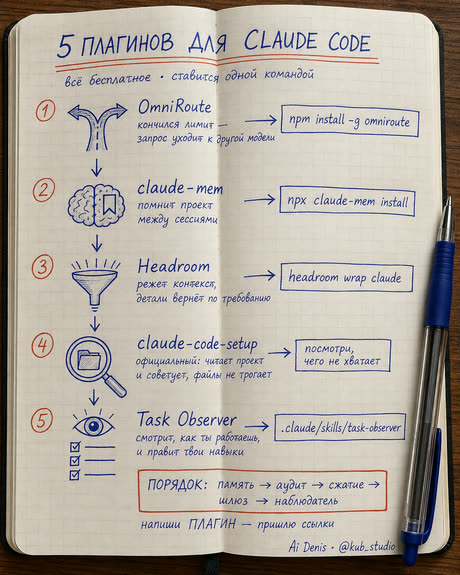 5 ПЛАГИНОВ ДЛЯ CLAUDE CODE
всё бесплатное • ставится одной командой
1
OmniRoute
кончился лимит —
запрос уходит к другой модели
npm install -g omniroute
2
claude-mem
помнит проект
между сессиями
npx claude-mem install
3
Headroom
режет контекст,
детали вернёт по требованию
headroom wrap claude
4
claude-code-setup
официальный: читает проект
и советует, файлы не трогает
посмотри,
чего не хватает
5
Task Observer
смотрит, как ты работаешь,
и правит твои навыки
.claude/skills/task-observer
ПОРЯДОК: память → аудит → сжатие →
шлюз → наблюдатель
напиши ПЛАГИН — пришлю ссылки
Ai Denis • @kub_studio